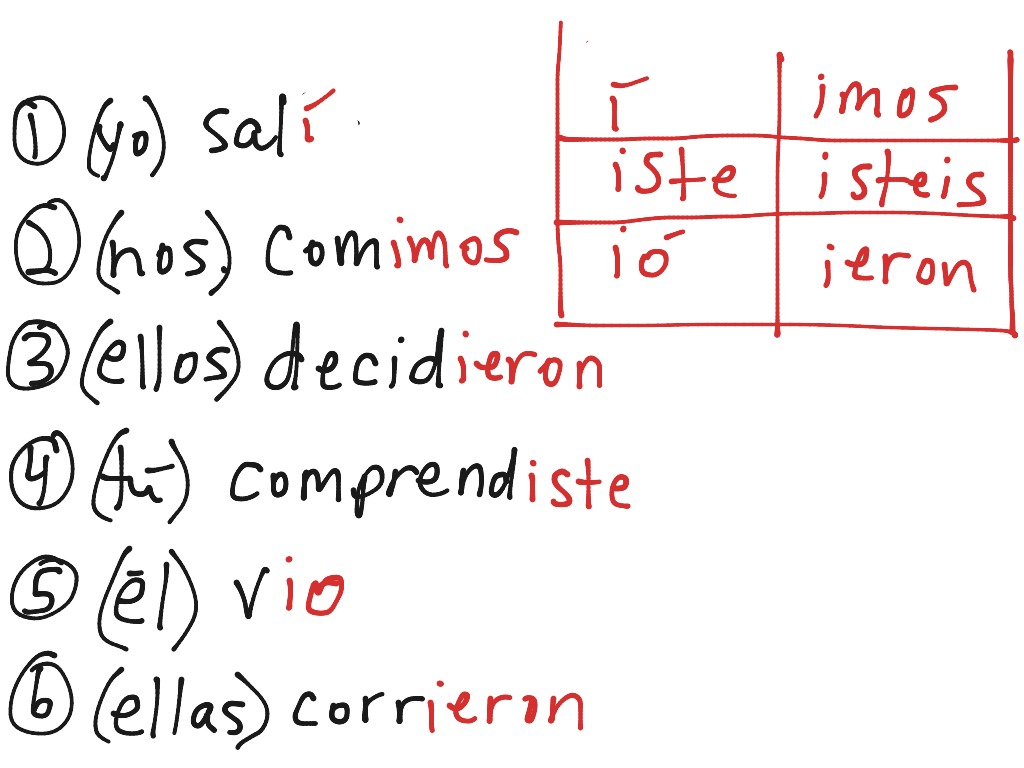 ① (yo) salí
② (nos.) comimos
③ (ellos) decidieron
④ (tú) comprendiste
⑤ (él) vio
⑥ (ellas) corrieron
í imos
iste isteis
ió ieron